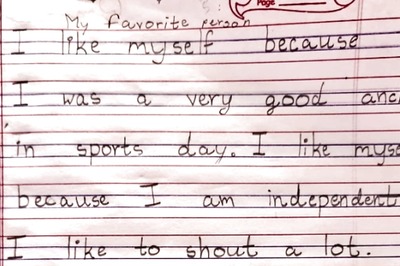 Page
My favorite person
I like myself because
I was a very good anc
in sports day. I like myse
because I am independent
I like to shout a lot.